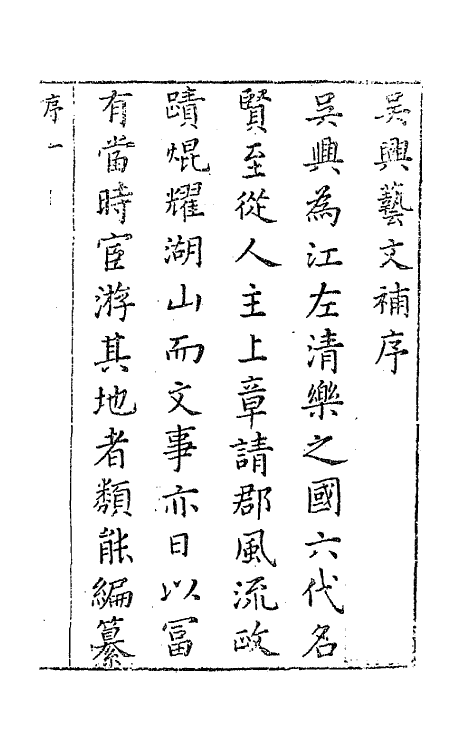 吳興藝文補序
吳興為江左清樂之國六代名
賢至從人主上章請郡風流政
蹟焜耀湖山而文事亦日以冨
有當時宦游其地者類能編纂
序一